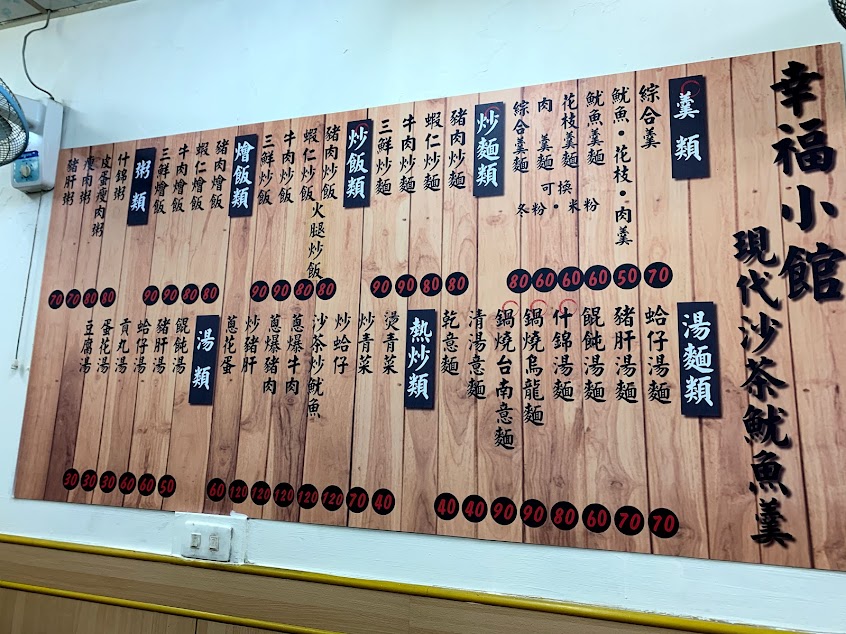 幸福小館
現代沙茶魷魚羹
羹類
綜合羹 70
魷魚・花枝・肉羹 50
魷魚羹麵 60
花枝羹麵 60
肉羹麵 60
綜合羹麵 80
可換
冬粉・米粉
炒麵類
豬肉炒麵 80
蝦仁炒麵 80
牛肉炒麵 90
三鮮炒麵 90
炒飯類
豬肉炒飯
火腿炒飯 80
蝦仁炒飯 80
牛肉炒飯 90
三鮮炒飯 90
燴飯類
豬肉燴飯 80
蝦仁燴飯 80
牛肉燴飯 90
三鮮燴飯 90
粥類
什錦粥 80
皮蛋瘦肉粥 80
瘦肉粥 70
豬肝粥 70
湯麵類
蛤仔湯麵 70
豬肝湯麵 70
餛飩湯麵 60
什錦湯麵 80
鍋燒烏龍麵 90
鍋燒台南意麵 90
清湯意麵 40
乾意麵 40
熱炒類
燙青菜 40
炒青菜 70
炒蛤仔 120
沙茶炒魷魚 120
蔥爆牛肉 120
蔥爆豬肉 120
炒豬肝 120
蔥花蛋 60
湯類
餛飩湯 50
豬肝湯 60
蛤仔湯 60
貢丸湯 30
蛋花湯 30
豆腐湯 30